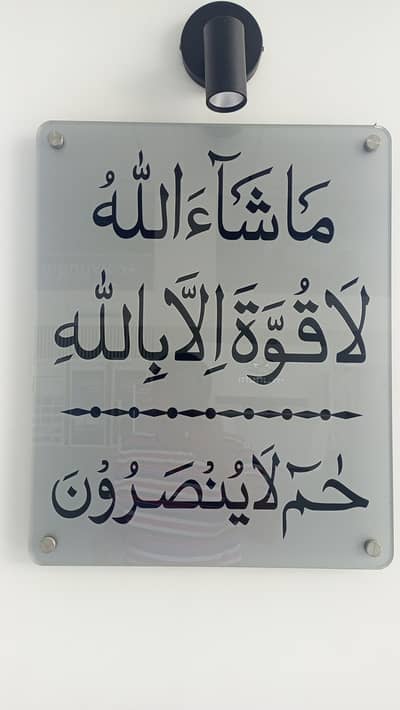 مَاشَآءَاللّٰهُ
لَا قُوَّةَ اِلَّا بِاللّٰهِ
حٰمٓ لَا يُنْصَرُوْنَ